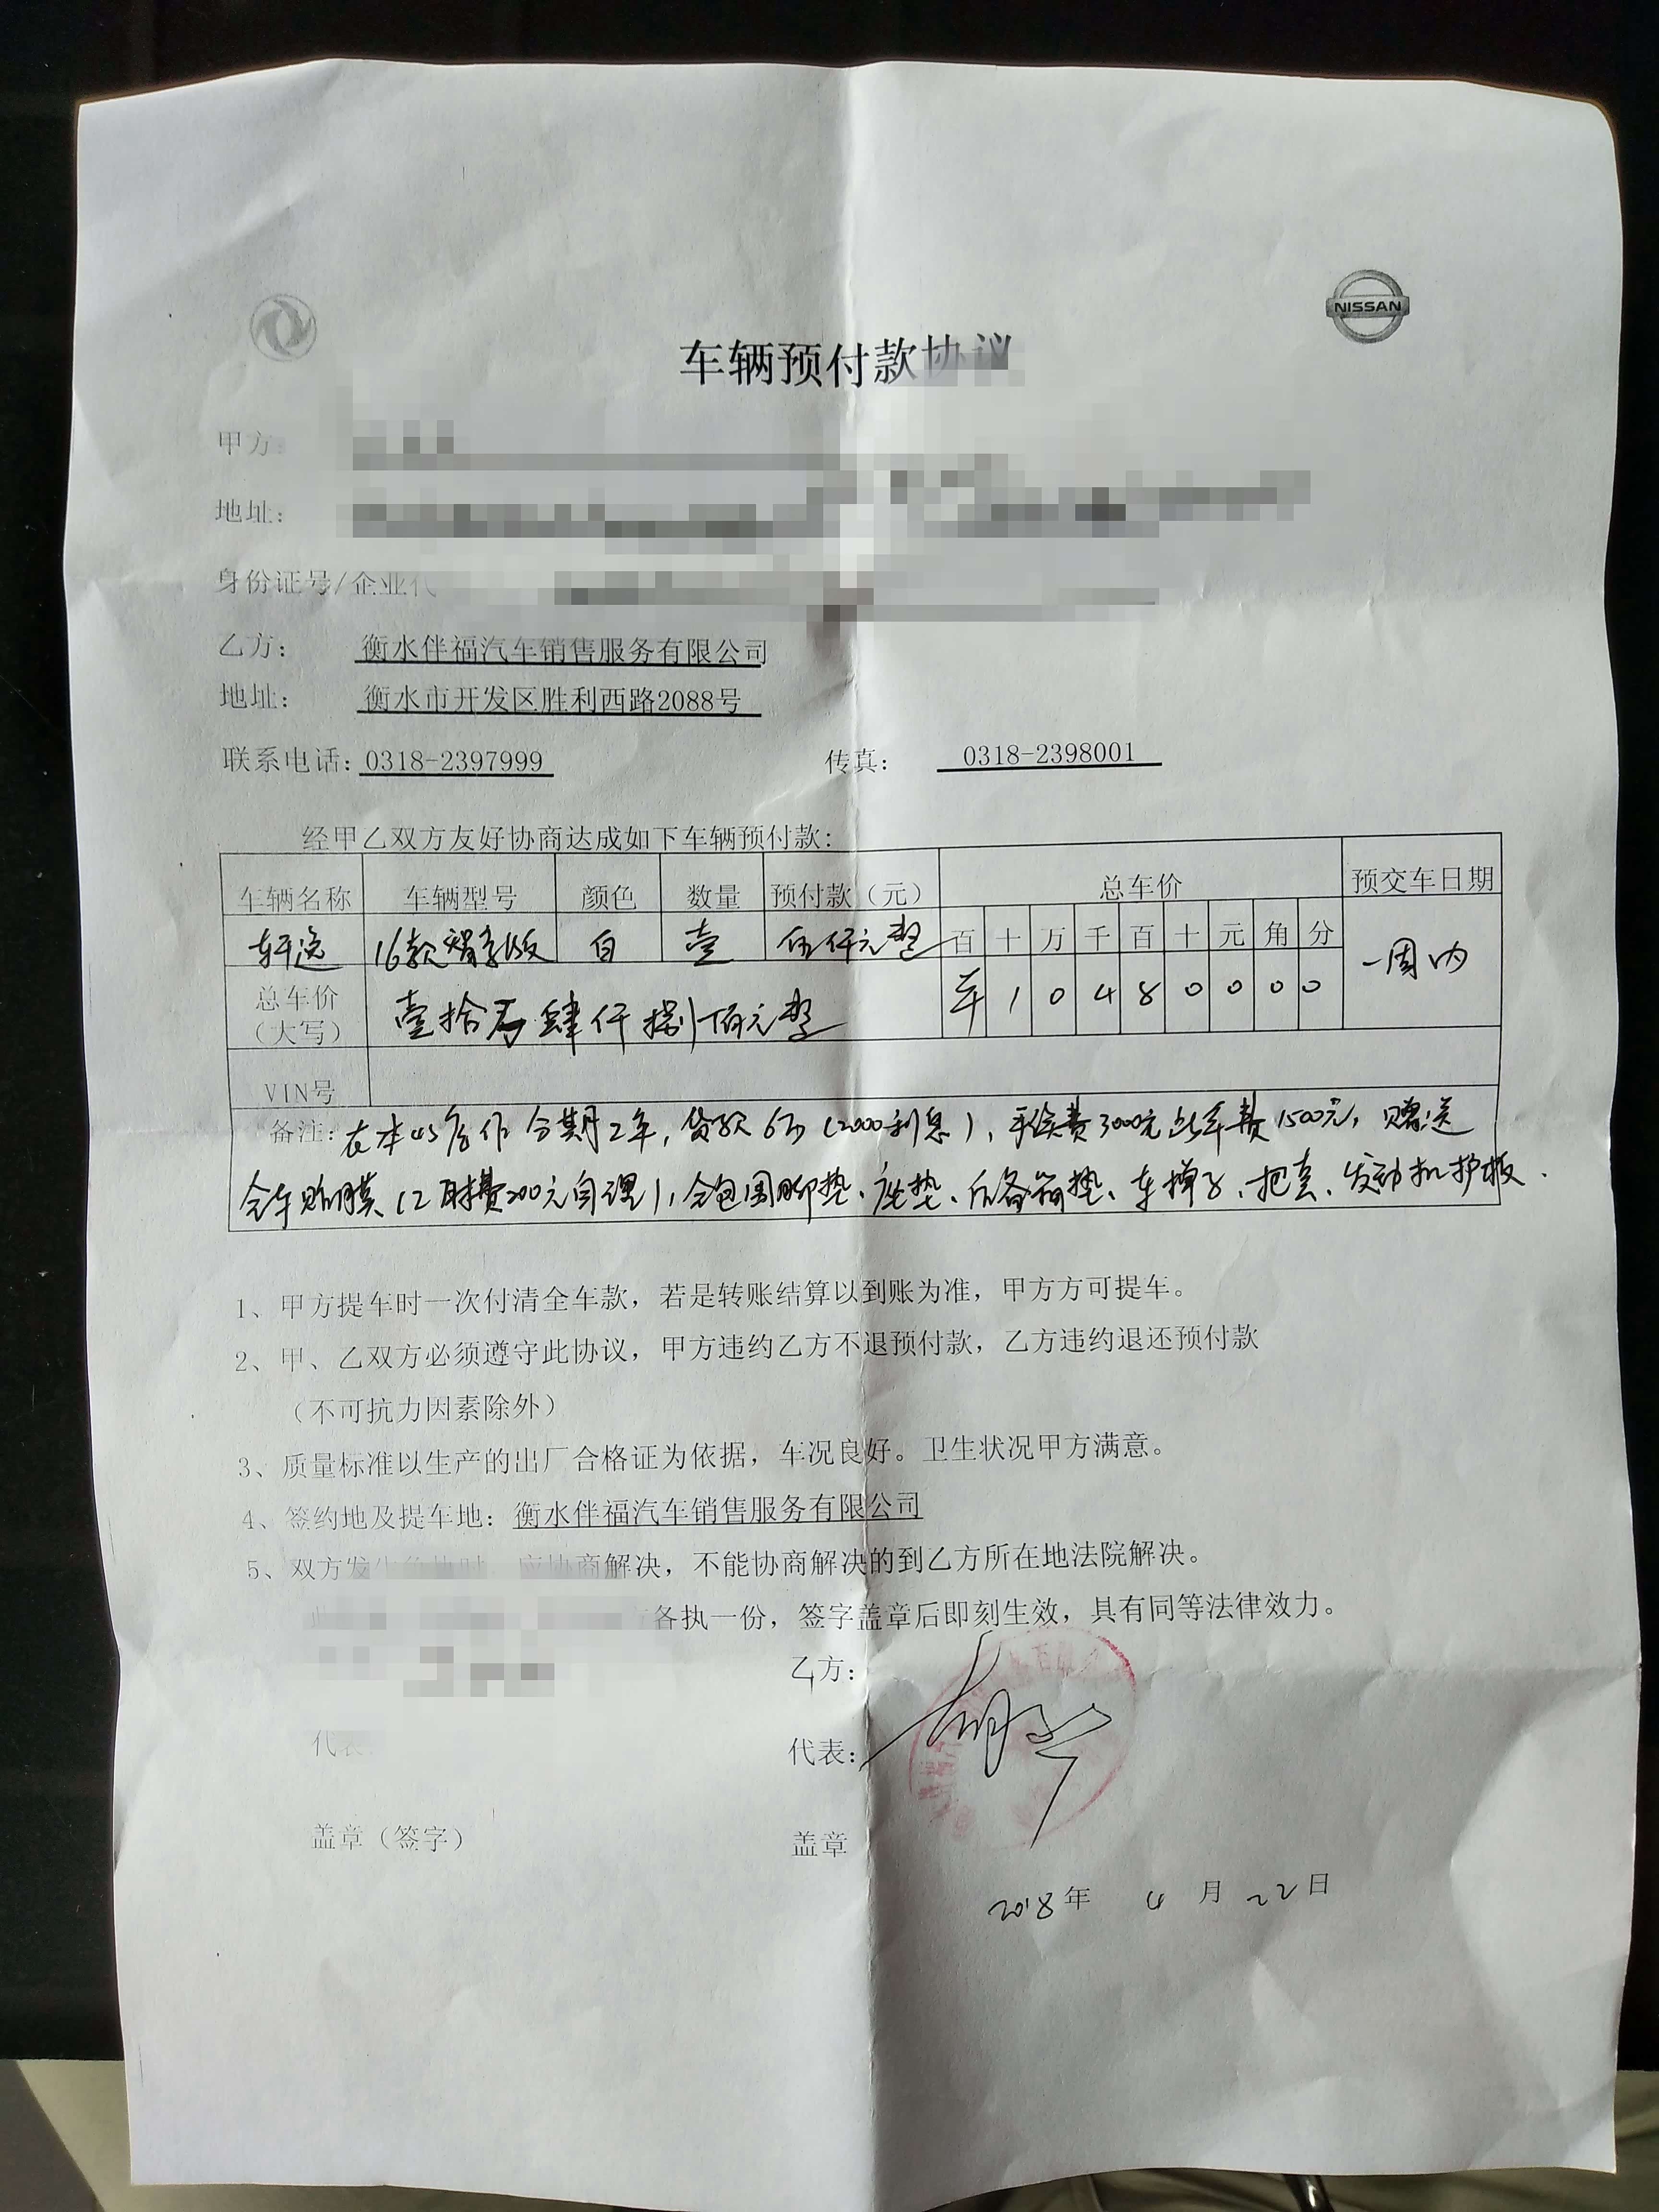 NISSAN
车辆预付款协议
甲方:
地址:
身份证号/企业代
乙方: 衡水伴福汽车销售服务有限公司
地址: 衡水市开发区胜利西路2088号
联系电话: 0318-2397999 传真: 0318-2398001
经甲乙双方友好协商达成如下车辆预付款:
车辆名称 车辆型号 颜色 数量 预付款（元） 总车价 预交车日期
百 十 万 千 百 十 元 角 分
轩逸 16款 白 壹 伍仟元整 一周内
总车价（大写） 壹拾万肆仟捌佰元整 1 0 4 8 0 0 0 0
VIN号
备注: 在本4S店作分期2年, 贷款6万(2000利息), 手续费3000元 1500元, 赠送
全车贴膜(工时费200元自理), 全包围脚垫、座垫、后备箱垫、车掸子、把套、发动机护板.
1、甲方提车时一次付清全车款，若是转账结算以到账为准，甲方方可提车。
2、甲、乙双方必须遵守此协议，甲方违约乙方不退预付款，乙方违约退还预付款
（不可抗力因素除外）
3、质量标准以生产的出厂合格证为依据，车况良好。卫生状况甲方满意。
4、签约地及提车地: 衡水伴福汽车销售服务有限公司
5、双方发 应协商解决，不能协商解决的到乙方所在地法院解决。
各执一份，签字盖章后即刻生效，具有同等法律效力。
乙方:
代表: 代表:
盖章（签字） 盖章
2018年 4 月 22日